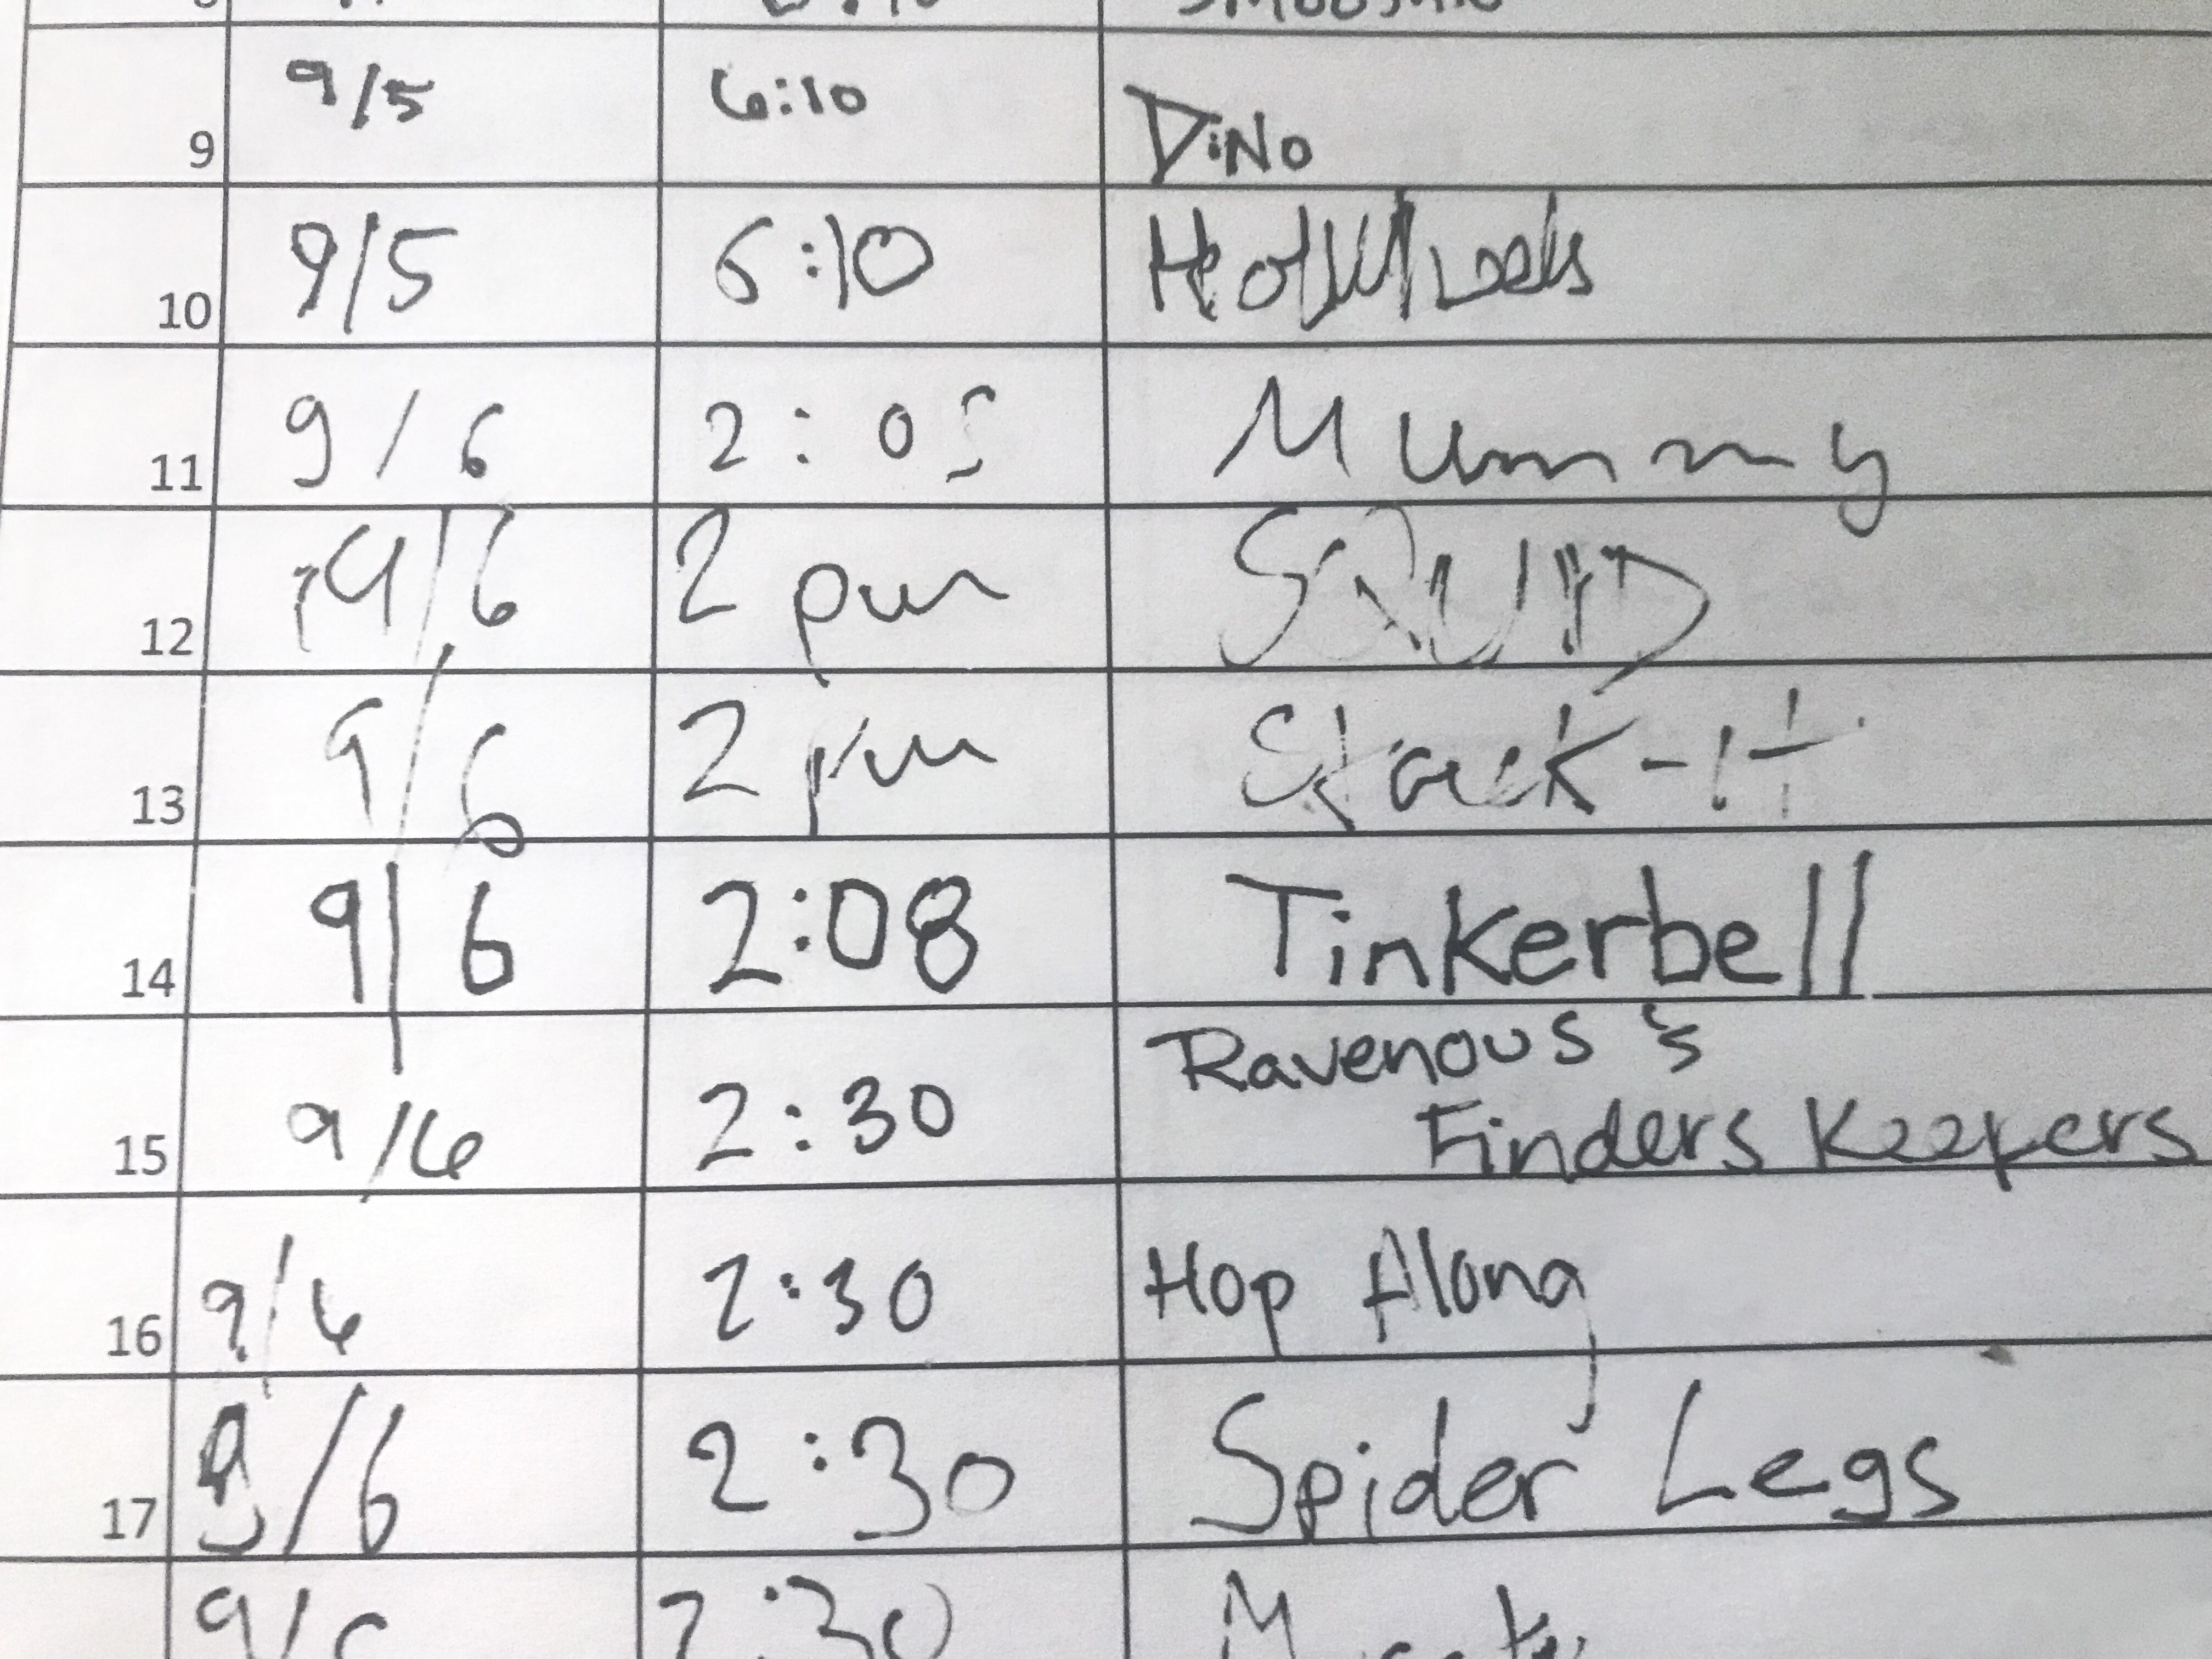 9 9/5 6:10 DiNo
10 9/5 6:10 HotWheels
11 9/6 2:05 Mummy
12 9/6 2 pm SQUID
13 9/6 2 pm Stack-it
14 9/6 2:08 Tinkerbell
Ravenous &
15 9/6 2:30 Finders Keepers
16 9/6 2:30 Hop Along
17 9/6 2:30 Spider Legs
2:30